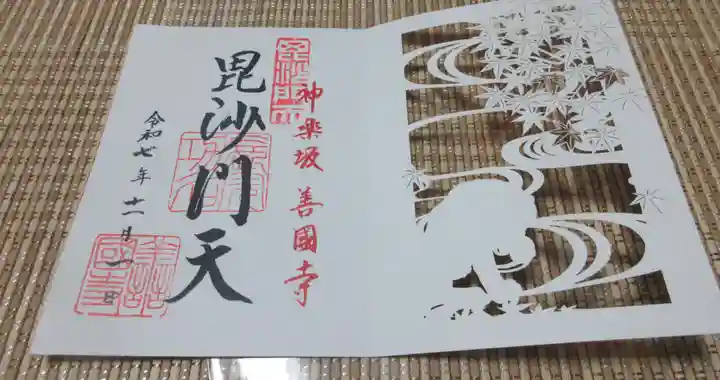 神楽坂 善國寺
毘沙門天
令和七年十一月一日